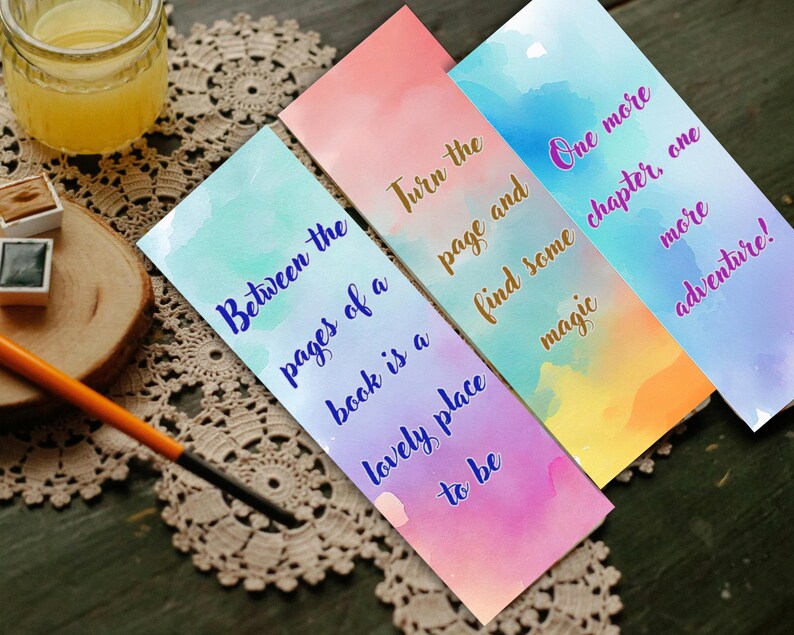 Between the
pages of a
book is a
lovely place
to be
Turn the
page and
find some
magic
One more
chapter, one
more
adventure!